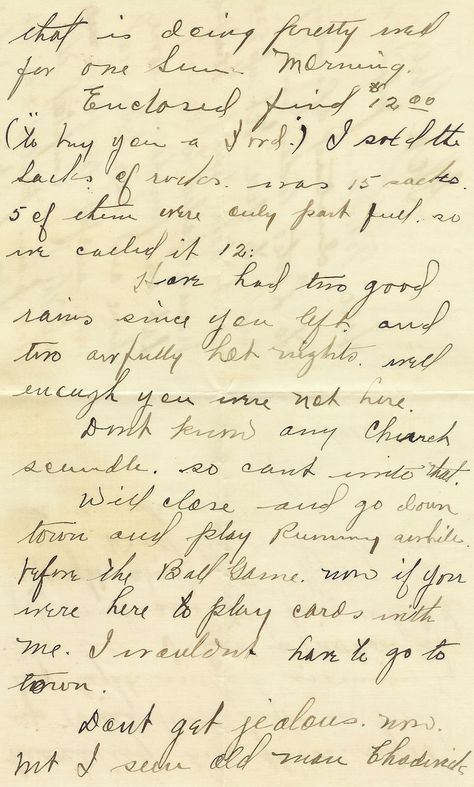 that is doing pretty well
for one Sun. Morning.
Enclosed find $12.00
("to buy you a Ford.) I sold the
sacks of rocks. was 15 sacks
5 of them were only part full. so
we called it 12:
Have had two good
rains since you left. and
two awfully hot nights. well
enough you were not here.
Dont know any Church
scandle. so cant write that.
Will close and go down
town and play Rummy awhile.
before the Ball Game. now if you
were here to play cards with
me. I wouldnt have to go to
town.
Dont get jealous. now.
but I seen old man Chadwick